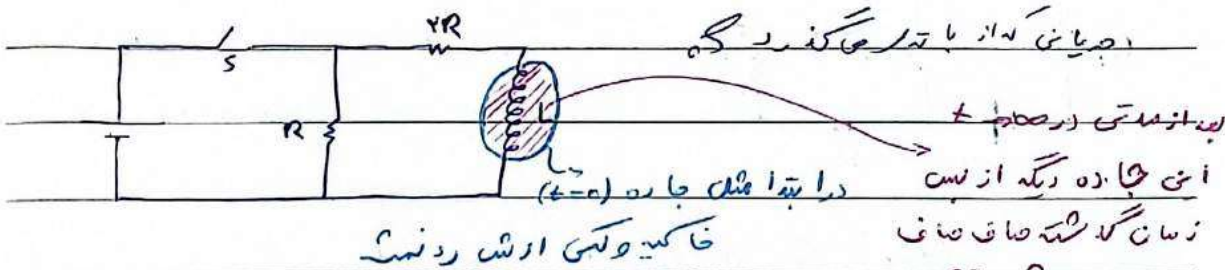 جریانی که از باتری می‌گذرد
۲R
S
R
L
بعد از مدتی در لحظه t
این جاده دیگه از بس
زمان گذشته صاف صاف
در ابتدا مثل جاده (t=0)
خاکیه و کسی ازش رد نمیشه